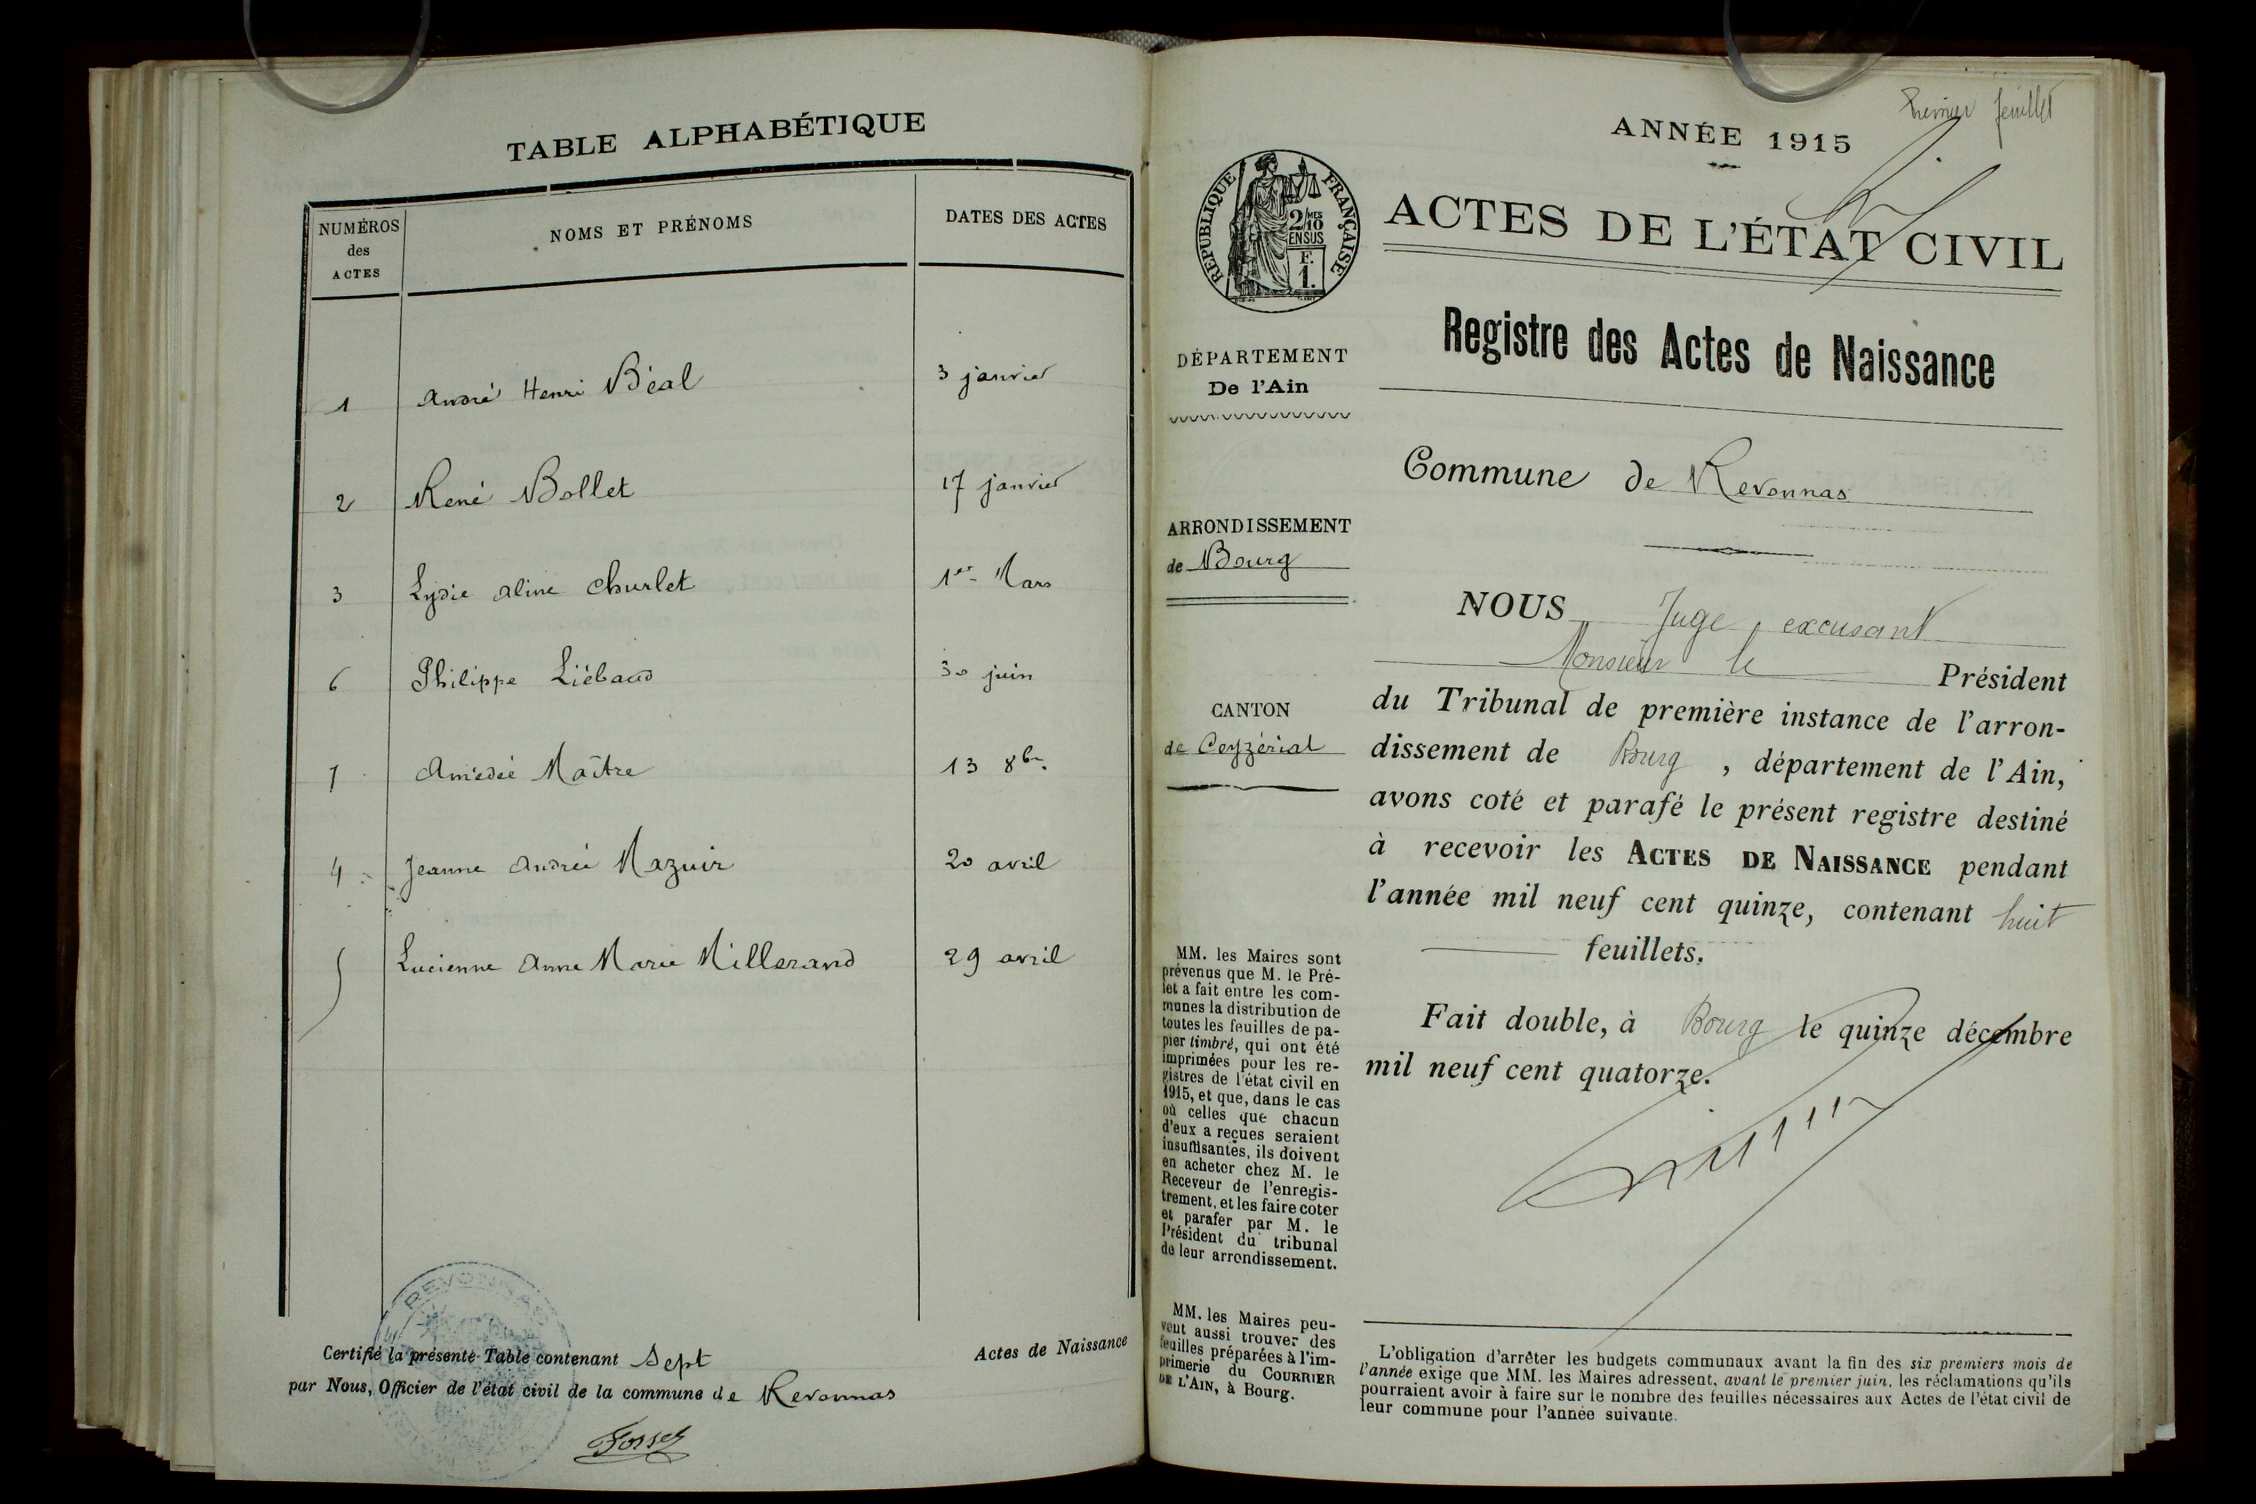 TABLE ALPHABÉTIQUE
NUMÉROS des ACTES
NOMS ET PRÉNOMS
DATES DES ACTES
1 André Henri Béal 3 janvier
2 René Bollet 17 janvier
3 Lydie Aline Churlet 1er Mars
6 Philippe Liébaud 30 juin
7 Amédée Maître 13 8bre
4 Jeanne Andrée Mazuir 20 avril
5 Lucienne Anne Marie Millerand 29 avril
Certifié la présente Table contenant Sept Actes de Naissance
par Nous, Officier de l'état civil de la commune de Revonnas
REVONNAS
Premier feuillet
ANNÉE 1915
RÉPUBLIQUE FRANÇAISE
2/10 MES
EN SUS
F.
1.
ACTES DE L'ÉTAT CIVIL
Registre des Actes de Naissance
DÉPARTEMENT
De l'Ain
Commune de Revonnas
ARRONDISSEMENT
de Bourg
CANTON
de Ceyzériat
NOUS Juge excusant
Monsieur le Président
du Tribunal de première instance de l'arron-
dissement de Bourg, département de l'Ain,
avons coté et parafé le présent registre destiné
à recevoir les ACTES DE NAISSANCE pendant
l'année mil neuf cent quinze, contenant huit
feuillets.
Fait double, à Bourg le quinze décembre
mil neuf cent quatorze.
MM. les Maires sont
prévenus que M. le Pré-
fet a fait entre les com-
munes la distribution de
toutes les feuilles de pa-
pier timbré, qui ont été
imprimées pour les re-
gistres de l'état civil en
1915, et que, dans le cas
où celles que chacun
d'eux a reçues seraient
insuffisantes, ils doivent
en acheter chez M. le
Receveur de l'enregis-
trement, et les faire coter
et parafer par M. le
Président du tribunal
de leur arrondissement.
MM. les Maires peu-
vent aussi trouver des
feuilles préparées à l'im-
primerie du COURRIER
DE L'AIN, à Bourg.
L'obligation d'arrêter les budgets communaux avant la fin des six premiers mois de
l'année exige que MM. les Maires adressent, avant le premier juin, les réclamations qu'ils
pourraient avoir à faire sur le nombre des feuilles nécessaires aux Actes de l'état civil de
leur commune pour l'année suivante.